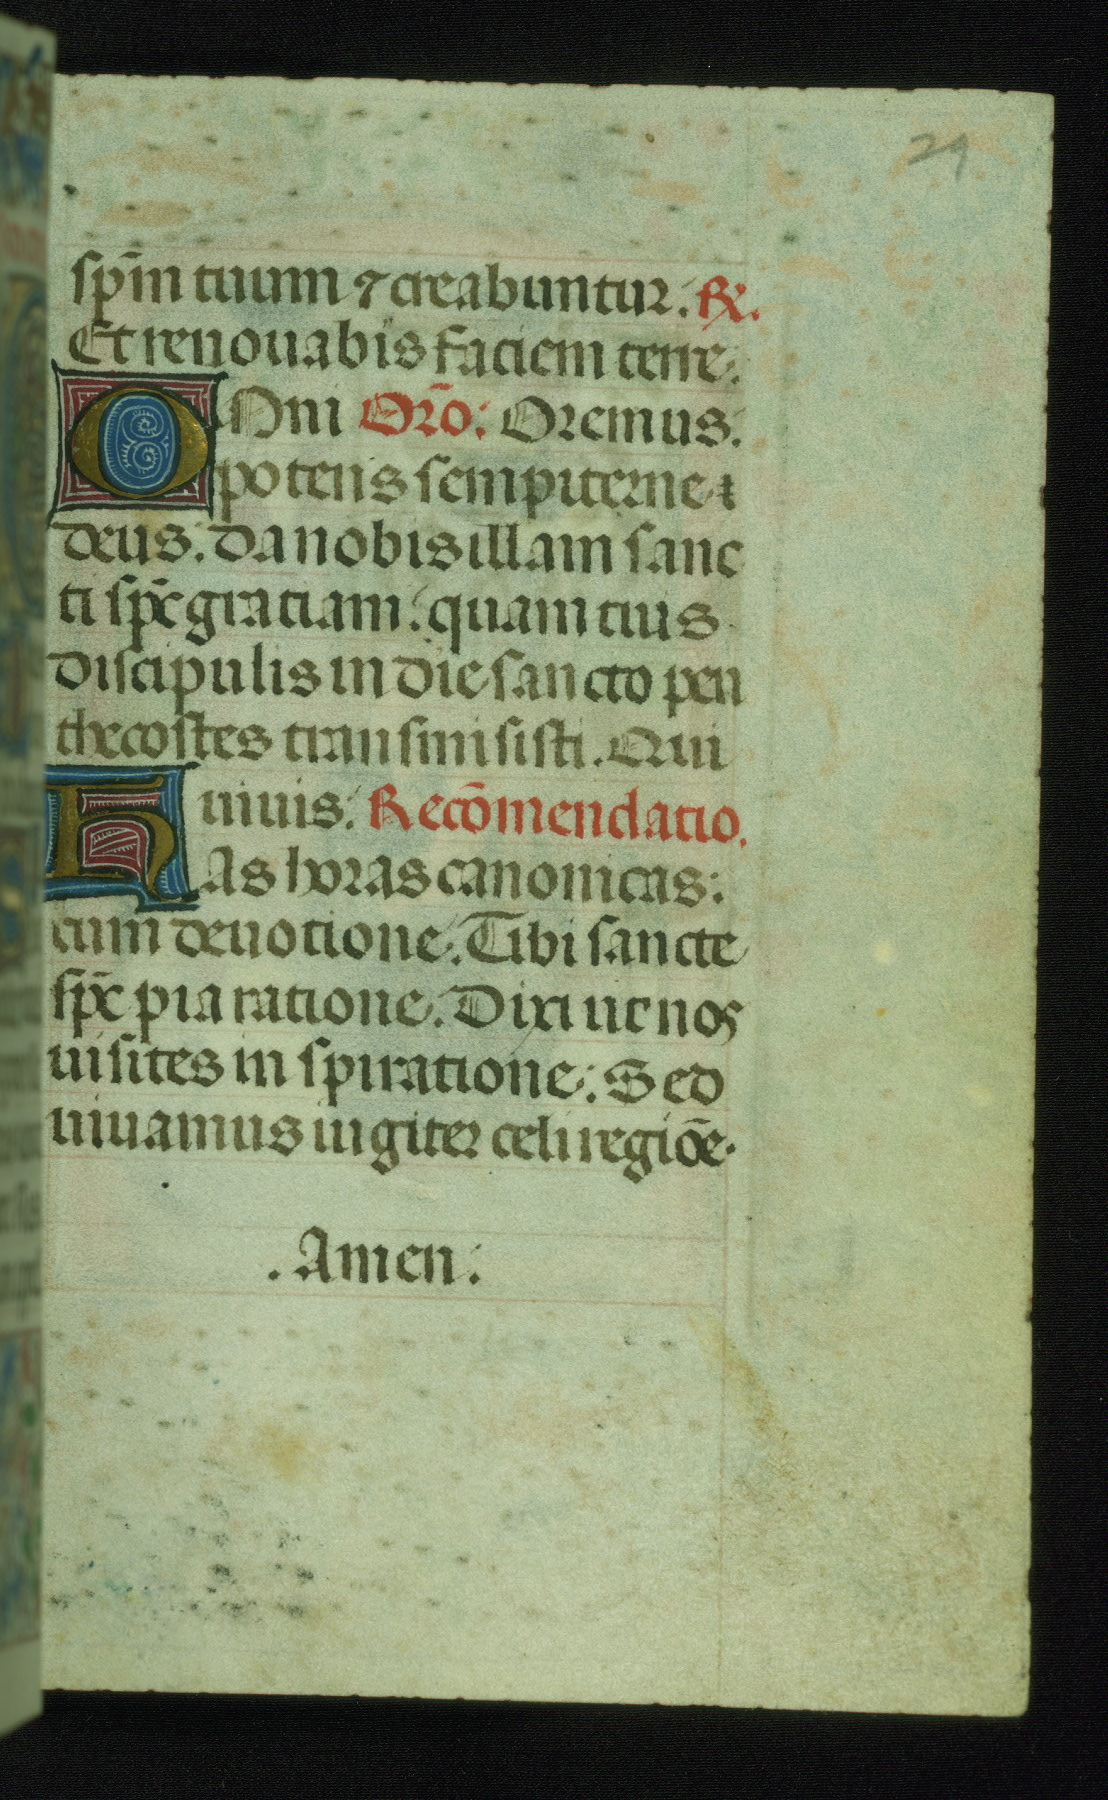 21
sp̄m tuum ⁊ creabuntur. R̷.
Et renouabis faciem terre.
OMni Orō: Oremus.
potens sempiterne
deus. da nobis illam sanc
ti spc̄ gratiam: quam tuis
discipulis in die sancto pen
thecostes transmisisti. Qui
uiuis: Recōmendatio.
HAs horas canonicas:
cum deuotione. Tibi sancte
spc̄ pia ratione. Dixi ut nos
uisites in spiratione: Sed
uiuamus iugiter celi regiōe.
. Amen: